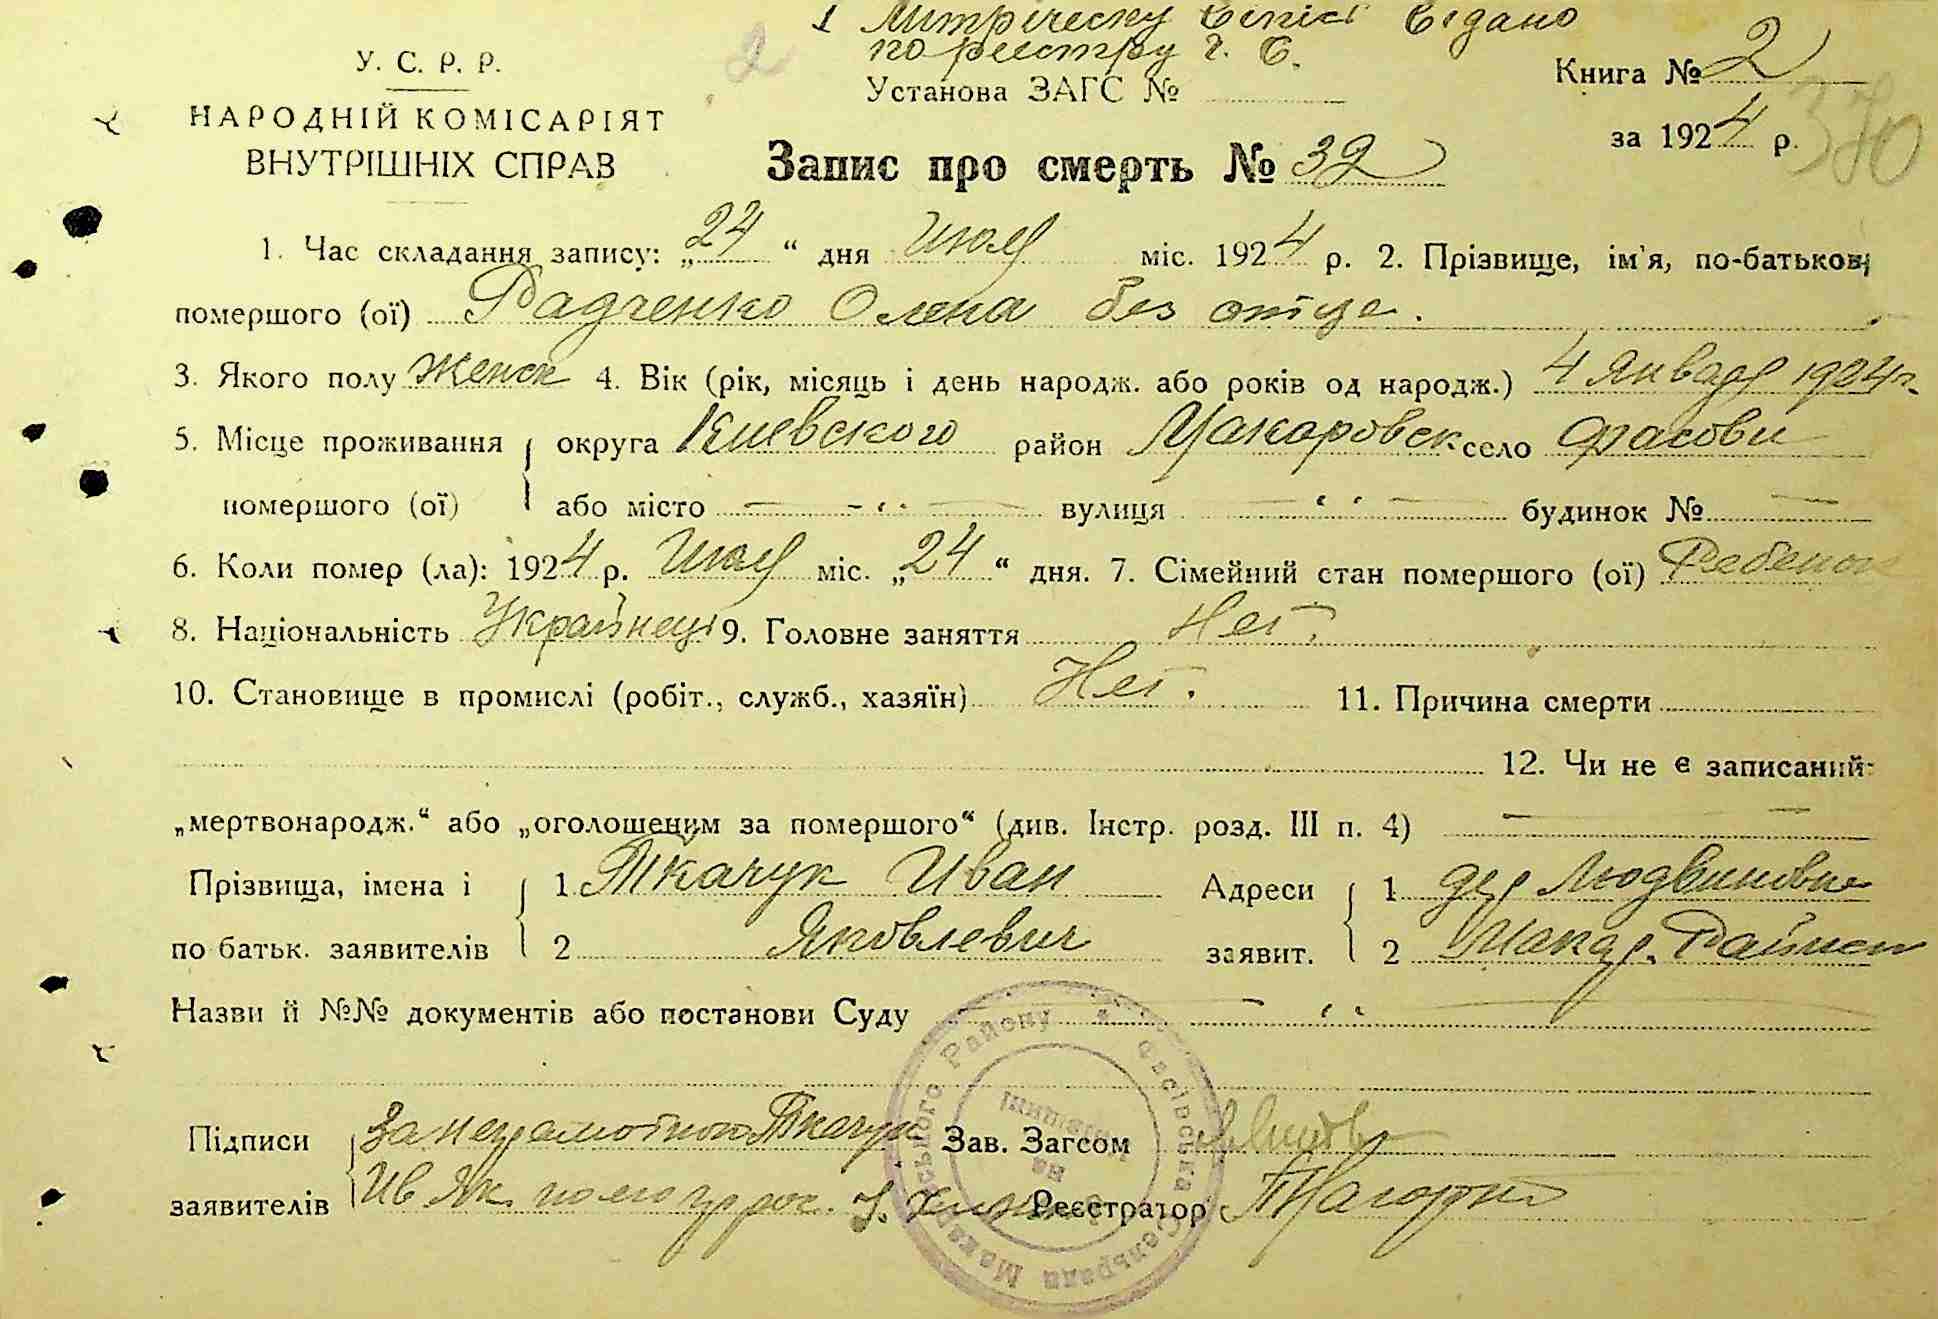 1 Митрическу Випісь Видано
по реестру г. С.
У. С. Р. Р.
НАРОДНІЙ КОМІСАРІЯТ
ВНУТРІШНІХ СПРАВ
2
Установа ЗАГС №
Книга № 2
за 1924 р.
370
Запис про смерть № 32
1. Час складання запису: „24“ дня Июля міс. 1924 р. 2. Прізвище, ім'я, по-батькові
помершого (ої) Радченко Олена без отце.
3. Якого полу Женск 4. Вік (рік, місяць і день народж. або років од народж.) 4 Января 1924 г.
5. Місце проживання округа Киевского район Макаровск село Фасови
помершого (ої) або місто — „ — вулиця — „ — будинок № —
6. Коли помер (ла): 1924 р. Июля міс. „24“ дня. 7. Сімейний стан помершого (ої) Ребенок
8. Національність Украінец 9. Головне заняття Нет.
10. Становище в промислі (робіт., служб., хазяїн) Нет. 11. Причина смерти
12. Чи не є записаний
„мертвонародж.“ або „оголошеним за помершого“ (див. Інстр. розд. III п. 4) — —
Прізвища, імена і по батьк. заявителів 1 Ткачук Иван
2 Яковлевич
Адреси заявит. 1 дер Людвиновки
2 Макар. Район
Назви й №№ документів або постанови Суду — „ —
Підписи заявителів За неграмотного Ткачук
Ив Як по его прос.
Зав. Загсом
Реєстратор
Фасівська Сельрада Макарівського Району